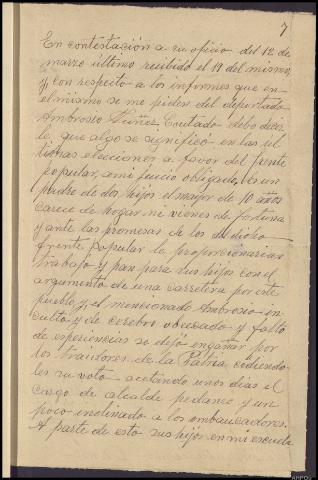 7
En contestación a su oficio del 12 de
marzo último recibido el 19 del mismo,
y con respecto a los informes que en
el mismo se me piden del deportado
Ambrosio Núñez Coutado debo decir
le, que algo se significó en las úl
timas elecciones a favor del frente
popular, a mi juicio obligado, es un
padre de dos hijos el mayor de 10 años
carece de hogar ni bienes de fortuna
y ante las promesas de los de dicho
frente popular le proporcionarian
trabajo y pan para sus hijos con el
argumento de una carretera por este
pueblo y, el mencionado Ambrosio in
culto y de cerebro obcecado y falto
de esperiencias se dejó engañar por
los traidores de la Patria, cediendo
les su voto acetando unos dias el
cargo de alcalde pedaneo y un
poco inclinado a los embaucadores.
A parte de esto sus hijos en mi escuela
AHPOu